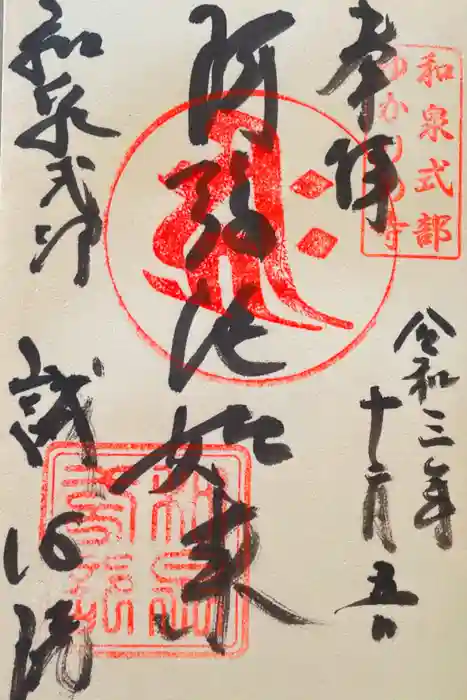 奉拝
和泉式部
ゆかりの寺
令和三年
十二月五日
阿弥陀如来
和泉式部
誠心院